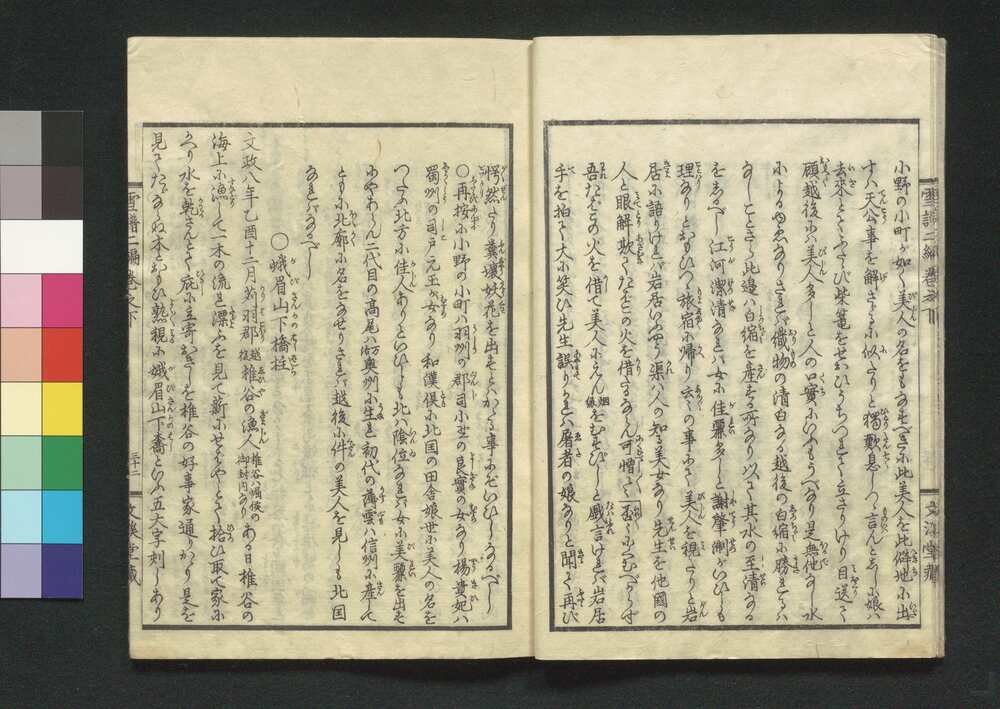 小野の小町が如く美人の名をもなすべきに此美人を此僻地に出
すハ天公事を解さゞるに似たりと獨歎息しつゝ言んとせしに娘ハ
去來とてふたゝび柴篭をせおひうちつれて立さりけり目送て
顧越後にハ美人多しと人の口實にいふもうべなり是無他なし水
によるゆゑなりされバ織物の清白なる越後の白縮に勝れるハ
なしことさら此邊ハ白縮を産する所なり以て其水の至清なる
をしるべし江河潔清なれバ女に佳麗多しと謝肇淛がいひしも
理なりとおもひつゝ旅宿に帰り云々の事にて美人を視たりと岩
居に語りければ岩居いふやう渠ハ人の知る美女なり先生を他國の
人と眼解欺てたばこの火を借たるならん可憎々々否々にくむべからず
吾たばこの火を借て美人にえん烟縁をむすびしと戲言けれバ岩居
手を拍て大に笑ひ先生誤りかれハ屠者の娘なりと聞て再び
愕然たり糞壤妖花を出すとハかゝる事にぞいひしなるべし
○再按に小野の小町ハ羽州の郡司小野の良實の女なり楊貴妃ハ
蜀州の司戸元玉が女なり和漢倶に北国の田舎娘世に美人の名を
つたふ北方に佳人ありといひしも北ハ陰位なれバ女に美麗を出す
にやあらん二代目の高尾ハ万治奥州に生れ初代の薄雲ハ信州に産して
ともに北廓に名をなせりされバ越後に件の美人を見しも北国
なれバなるべし
○峨眉山下橋柱
文政八年乙酉十二月苅羽郡越後椎谷の漁人椎谷ハ堀侯の御封内なりある日椎谷の
海上に漁して一木の流れ漂ふを見て薪にせばやとて拾ひ取て家に
かへり水を乾さんとて庇に立寄おきしを椎谷の好事家通りかゝり是を
見てたゞならぬ木とおもひ熟視に娥眉山下喬といふ五大字刻しあり
雪譜二編 巻之下
三十二
文溪堂藏